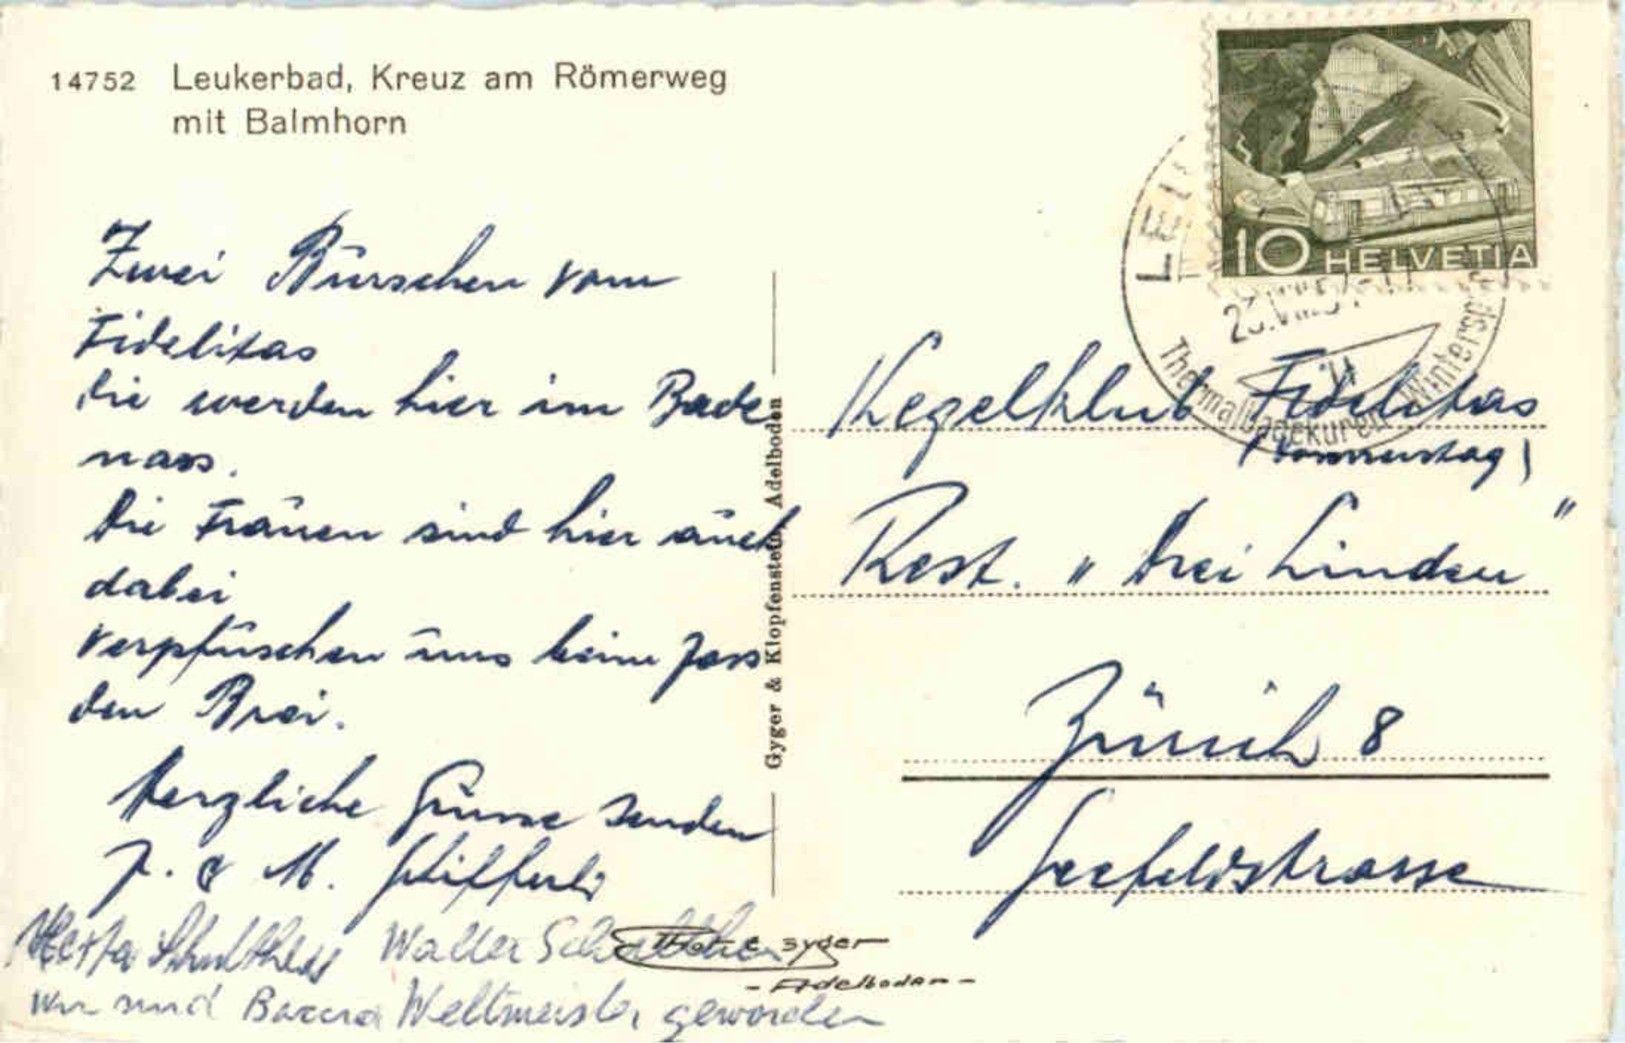 14752 Leukerbad, Kreuz am Römerweg
mit Balmhorn
Zwei Bürschen vom
Fidelitas
die werden hier im Bade
nass.
Die Frauen sind hier auch
dabei
verpfuschen uns beim Jass
den Brei.
Herzliche Grüsse senden
J. & M. Stifferli
Herta Schulthess Walter Schulthess
Wir sind Baccra Weltmeister geworden
Gyger & Klopfenstein, Adelboden
10 HELVETIA
LEU
23.VIII.5
Thermalbadekuren Wintersp
Kegelklub Fidelitas
(Donnerstag)
Rest. "Drei Linden"
Zürich 8
Seefeldstrasse
Phot. E. Gyger
- Adelboden -